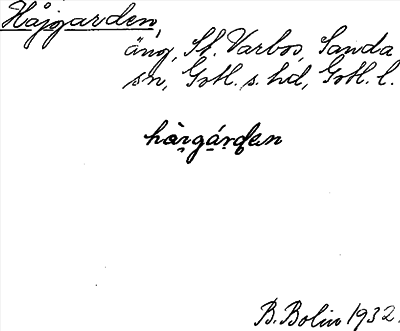 Hàjgarden,
äng, St. Varbos, Sanda
sn, Gotl. s. hd, Gotl. l.
B. Bolin 1932.